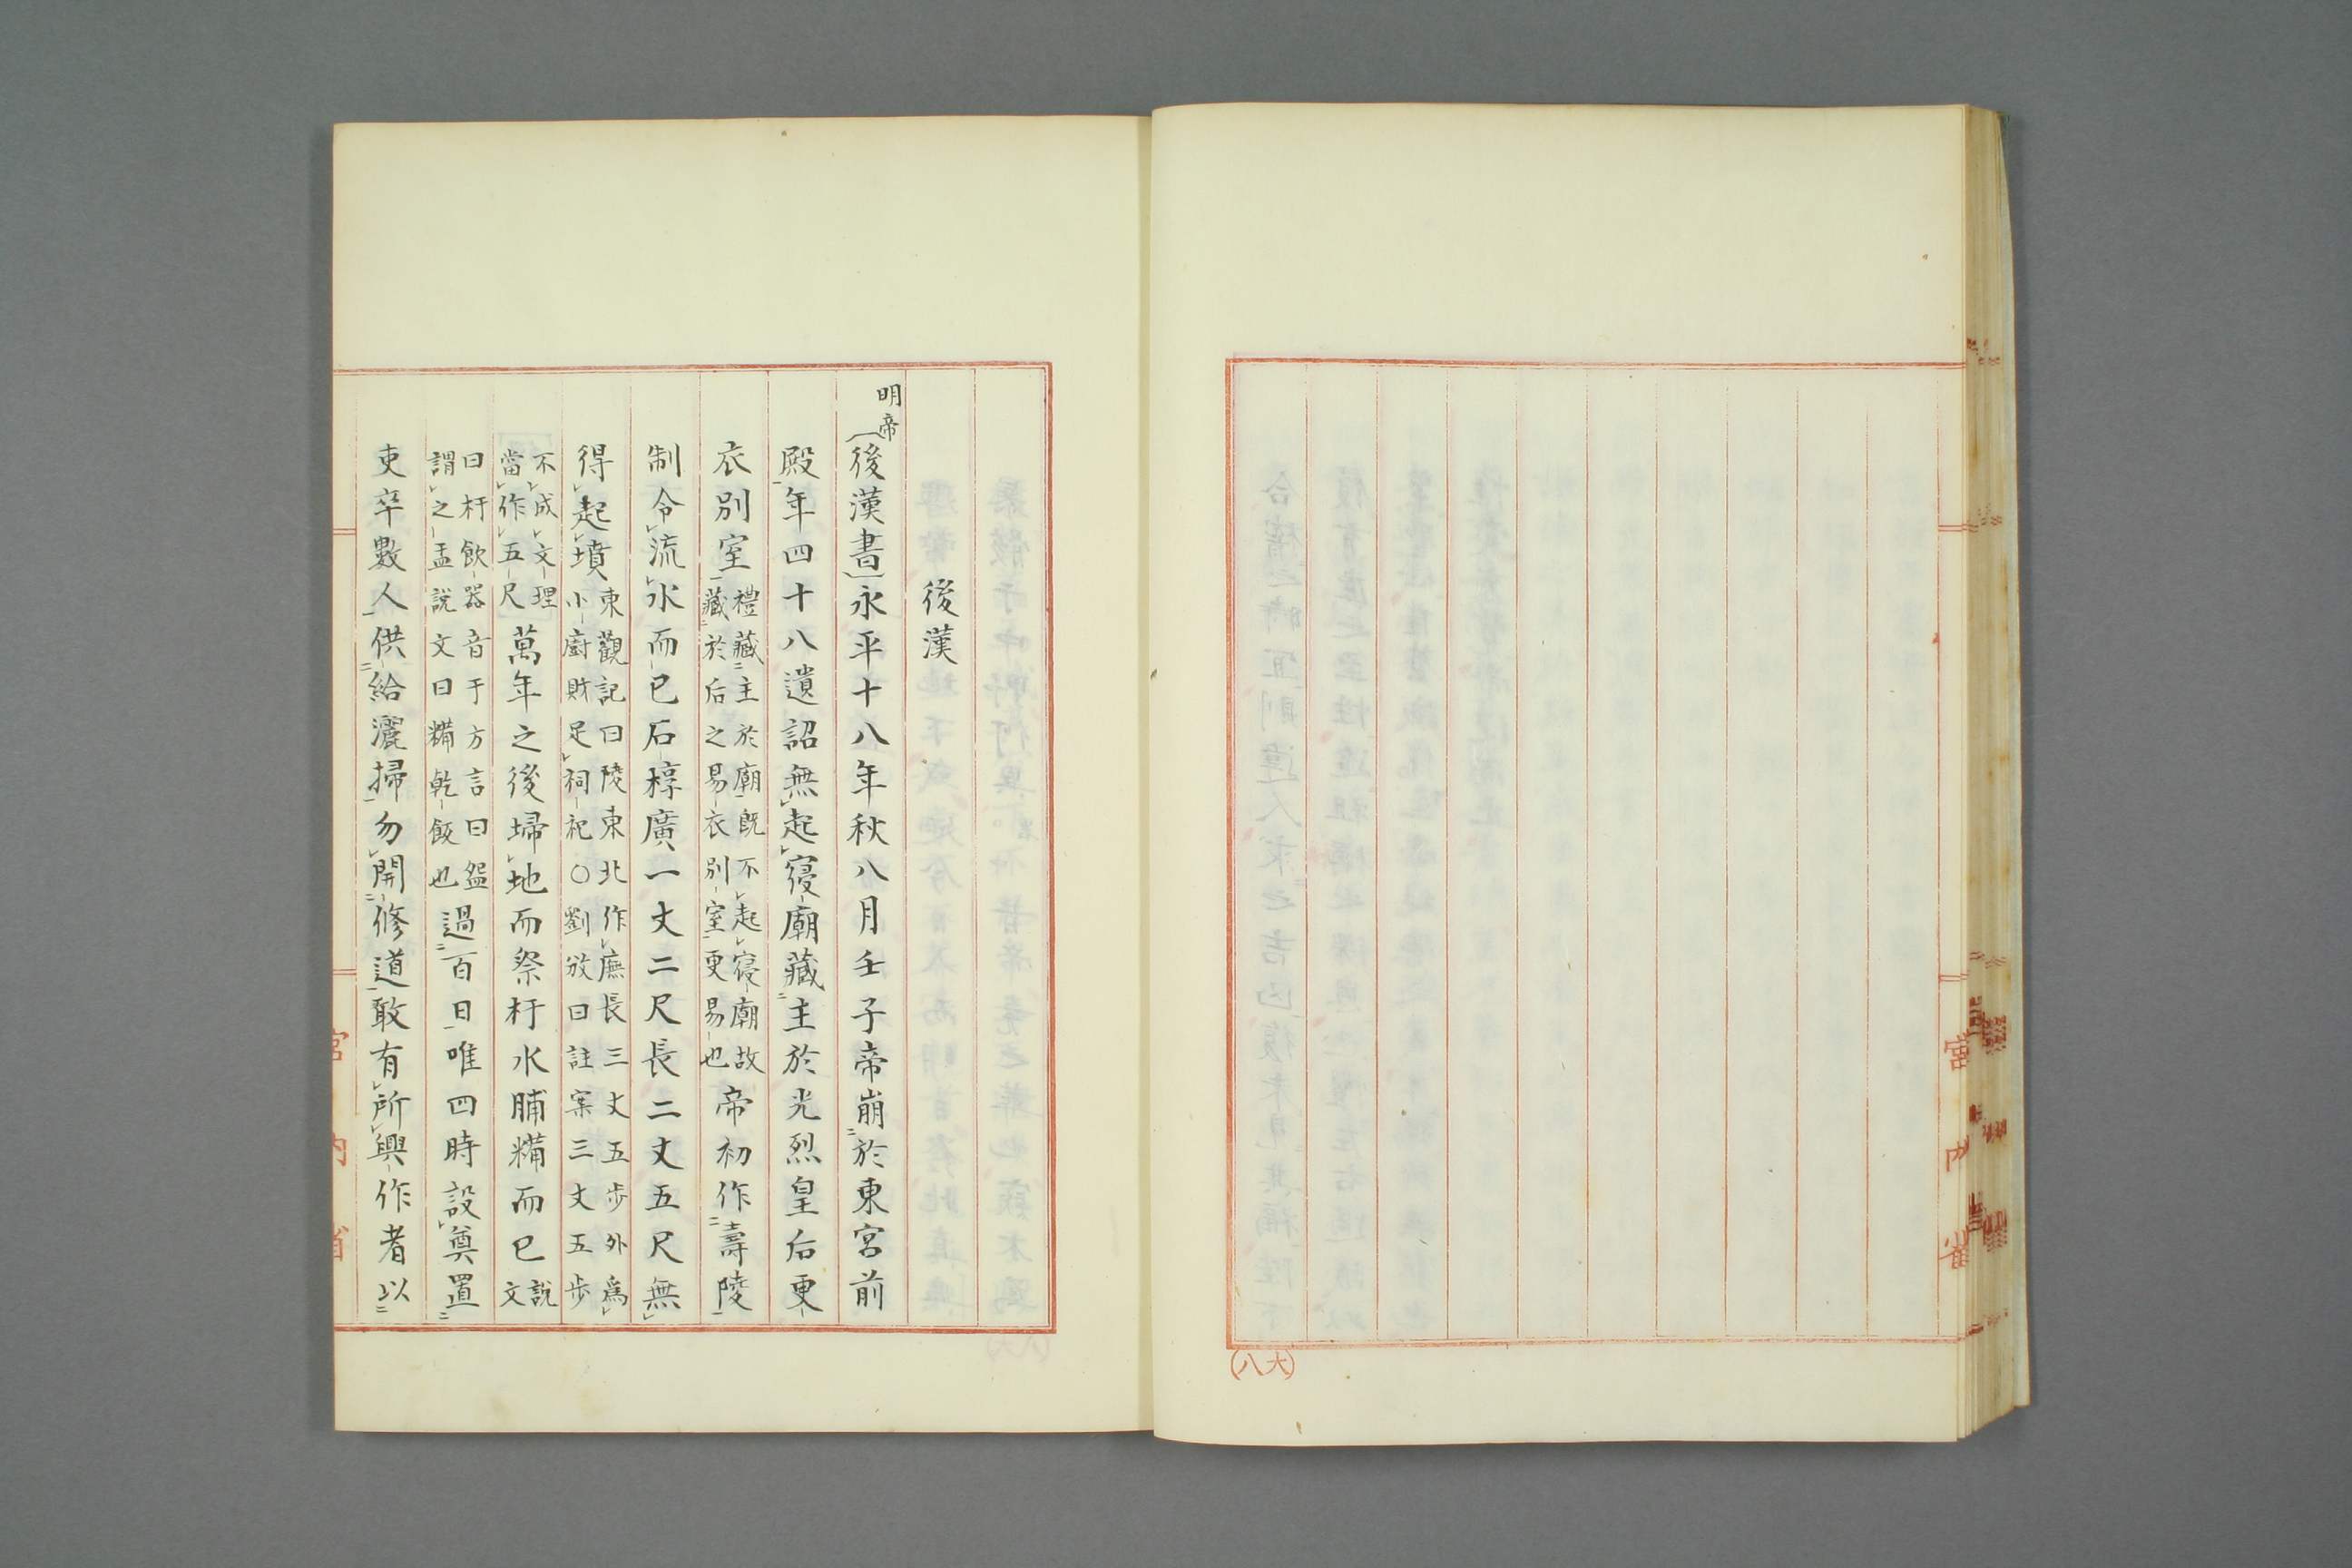 (大八)
宮内省
後漢
明帝
後漢書永平十八年秋八月壬子帝崩於東宮前
殿年四十八遺詔無起寑廟藏主於光烈皇后更
衣別室禮藏主於廟既不起寑廟故藏於后之易衣別室更易也帝初作壽陵
制令流水而已石椁廣一丈二尺長二丈五尺無
得起墳東觀記曰陵東北作廡長三丈五步外爲小廚財足祠祀○劉攽曰註案三丈五步
不成文理當作五尺萬年之後埽地而祭杅水脯糒而已説文
曰杅飲器音于方言曰盌謂之盂説文曰糒乾飯也過百日唯四時設奠置
吏卒數人供給灑掃勿開修道敢有所興作者以
宮内省